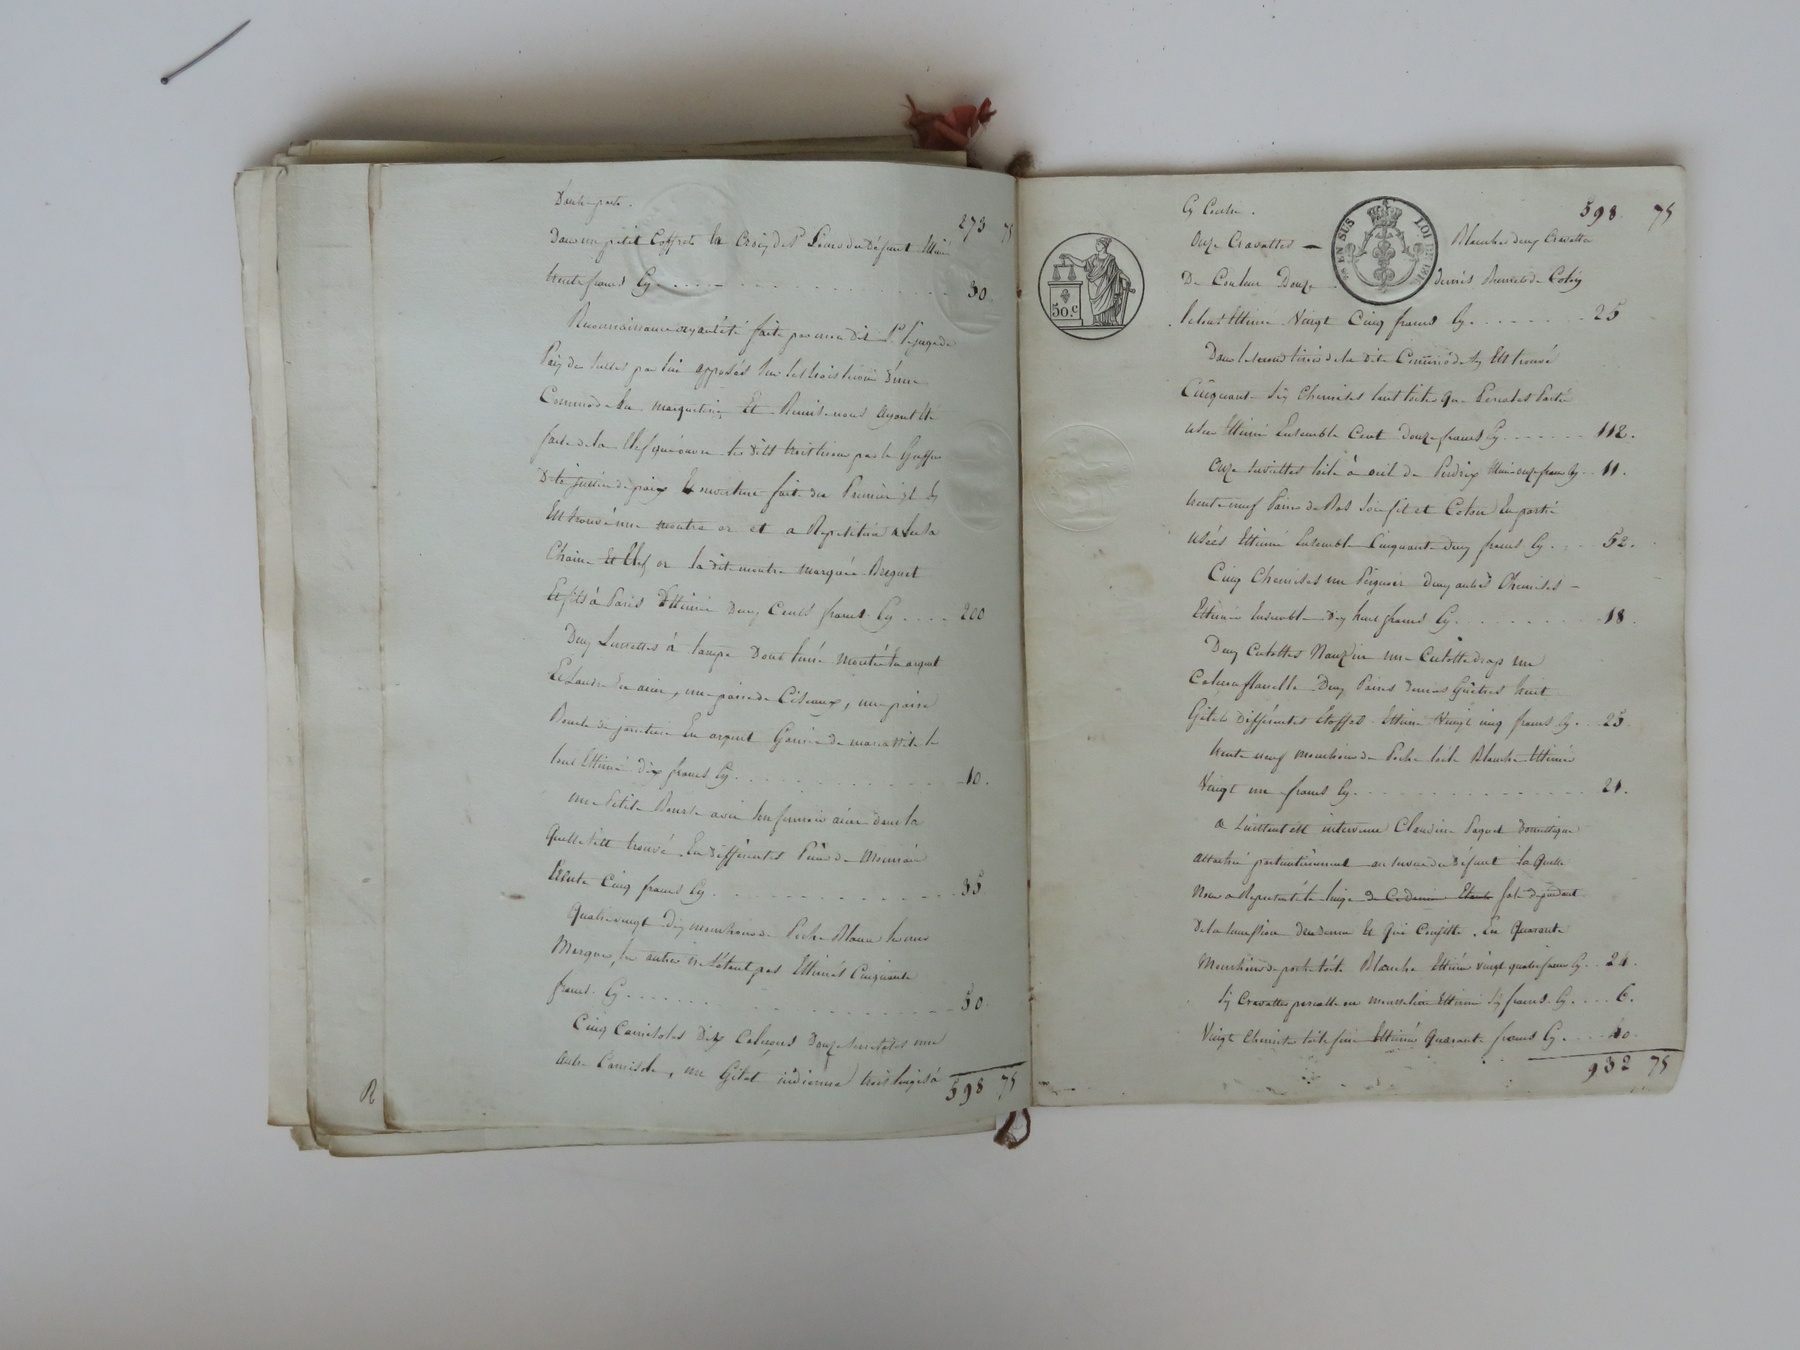 D'autre part. 273 75
Dans un petit Coffret la Croix de St Louis du Défunt Estimé
trente francs Cy 30.
Reconnaissance ayant été faite par mon dit Sr le juge de
Paix des scellés par lui apposés sur les trois tiroirs d'une
Commode en marqueterie Et Remise nous ayant été
faite de la Clef qui ouvre les dits trois tiroirs par le Greffier
De la justice de paix Et ouverture faite du Premier il y
Est trouvé une montre or et a Repetition
Chaine Et Clef or la dite montre marquée Breguet
Et fils à Paris Estimée Deux Cents francs Cy 200
Deux Lunettes à Double montée En argent
Et L'autre En acier, une paire de Ciseaux, une paire
Boucle de jarretiere En argent Garnie de le
tout Estimé dix francs Cy 10.
une Petite Bourse avec son fermoir acier dans la
Quelle s'est trouvé En différentes Pièces de Monnaie
trente Cinq francs Cy 35
Quatre vingt dix mouchoirs de Poche Blanc
Marqués, les autres ne l'étant pas Estimés Cinquante
francs Cy 50.
Cinq Camisoles Dix Caleçons Douze Serviettes une
autre Camisole, un Gilet indienne trois linges à
598 75
R
Cy Contre. 598. 75
EN SUS LOI
50.c
Onze Cravattes Blanches deux Cravattes
De Couleur Douze Bonnets de Coton
le tout Estimé Vingt Cinq francs Cy 25
Dans le second tiroir de la dite Commode s'y Est trouvé
Cinquante Six Chemises tant toile que Percales Partie
usées Estimé Ensemble Cent douze francs Cy 112.
Onze serviettes toile à oeil de Perdrix Estimé onze francs Cy 11.
trente neuf Paires de Bas Soie fil et Coton En partie
usées Estimé Ensemble Cinquante deux francs Cy 52.
Cinq Chemises un Peignoir Deux autres Chemises
Estimé Ensemble Dix huit francs Cy 18.
Deux Culottes Nanquin une Culotte drap un
Caleçon flanelle Deux Paires Guêtres huit
Gilets Différentes Etoffes Estimé Vingt cinq francs Cy 25.
trente neuf mouchoirs de Poche toile Blanche Estimés
Vingt un francs Cy 21.
a L'instant est intervenue Claudine Paquet domestique
attachée au service du Défunt la Quelle
Nous a Représenté le linge de Ce dernier Etant fait dépendant
De la succession du dernier Et Qui Consiste En Quarante
Mouchoirs de poche toile Blanche Estimés vingt quatre francs Cy 24.
Six Cravattes percalle ou mousseline Estimé Six francs Cy 6.
Vingt Chemises toile fine Estimé Quarante francs Cy 40.
932 75